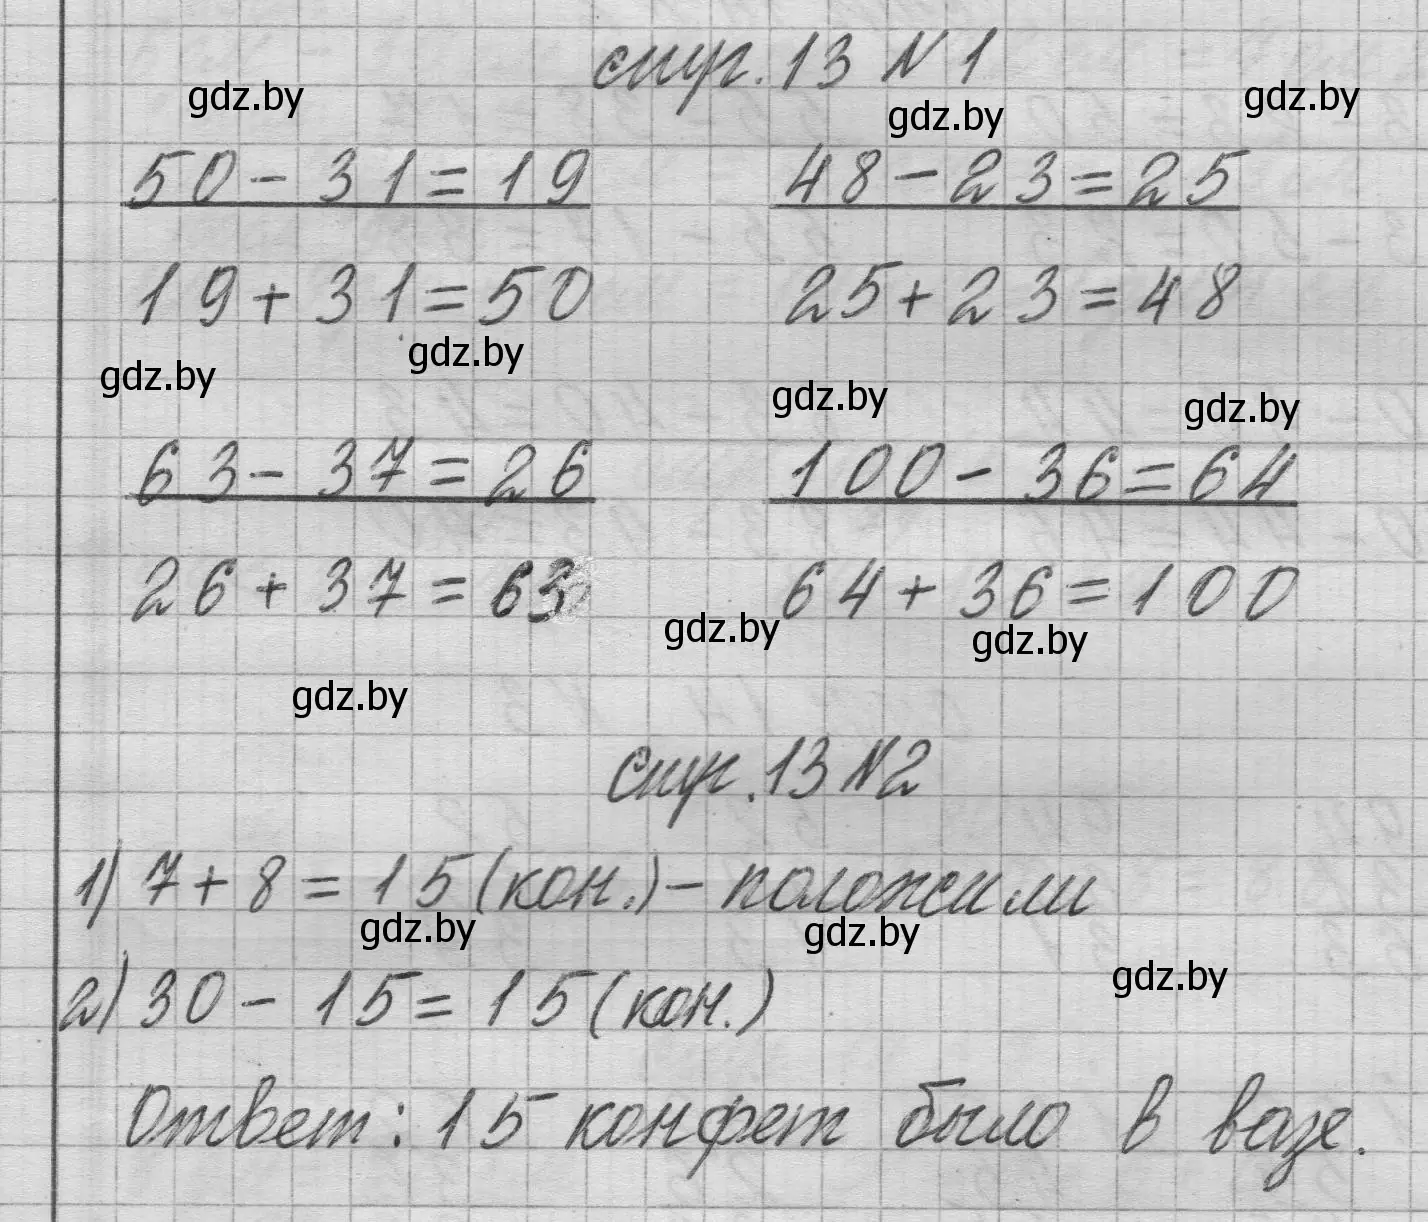 стр. 13 № 1
gdz.by gdz.by gdz.by
50 - 31 = 19 48 - 23 = 25
19 + 31 = 50 25 + 23 = 48
gdz.by gdz.by gdz.by gdz.by
63 - 37 = 26 100 - 36 = 64
26 + 37 = 63 64 + 36 = 100
gdz.by gdz.by
gdz.by
стр. 13 № 2
1) 7 + 8 = 15 (кон.) - положили
gdz.by gdz.by
2) 30 - 15 = 15 (кон.)
gdz.by
Ответ: 15 конфет было в вазе.